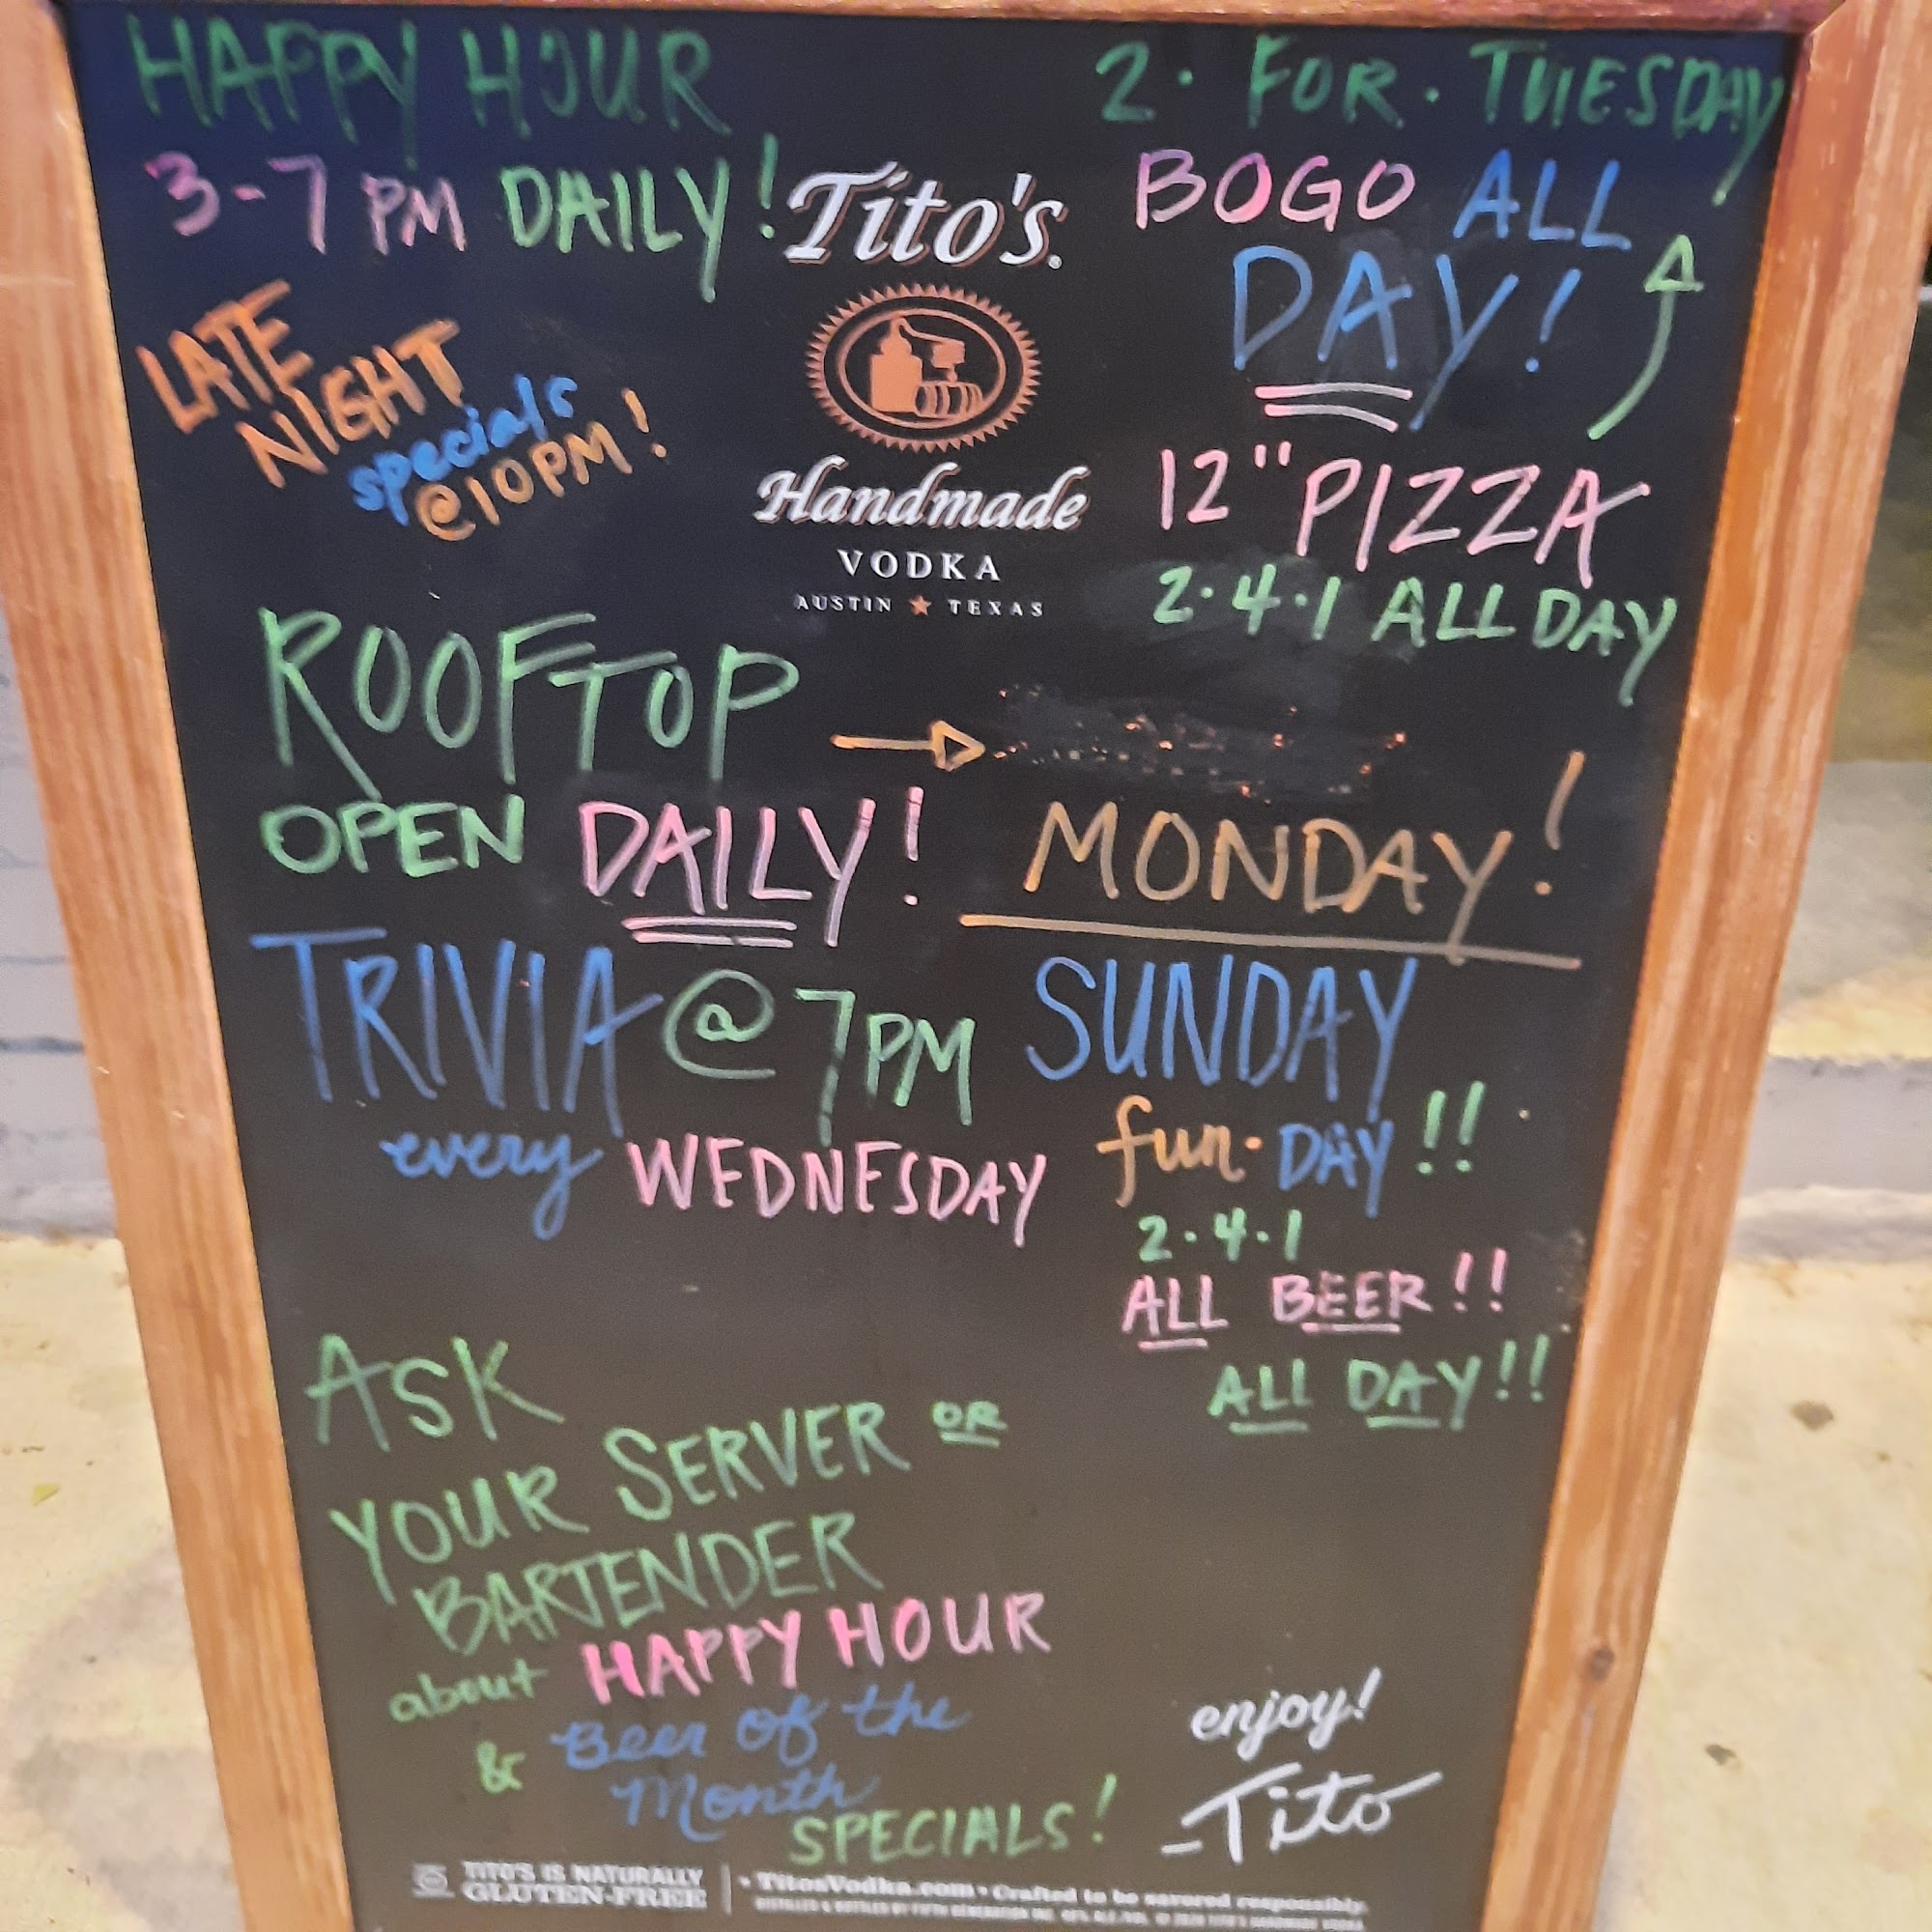 HAPPY HOUR
3-7 PM DAILY!
LATE
NIGHT
specials
@10PM!
Tito's®
Handmade
VODKA
AUSTIN ★ TEXAS
2 · FOR · TUESDAY
BOGO ALL
DAY!
12" PIZZA
2·4·1 ALL DAY
ROOFTOP →
OPEN DAILY!
MONDAY!
TRIVIA @ 7PM
every WEDNESDAY
SUNDAY
fun·DAY!!
2·4·1
ALL BEER!!
ALL DAY!!
ASK
YOUR SERVER OR
BARTENDER
about HAPPY HOUR
& Beer of the
Month
SPECIALS!
enjoy!
-Tito
TITO'S IS NATURALLY
GLUTEN-FREE
• TitosVodka.com • Crafted to be savored responsibly.